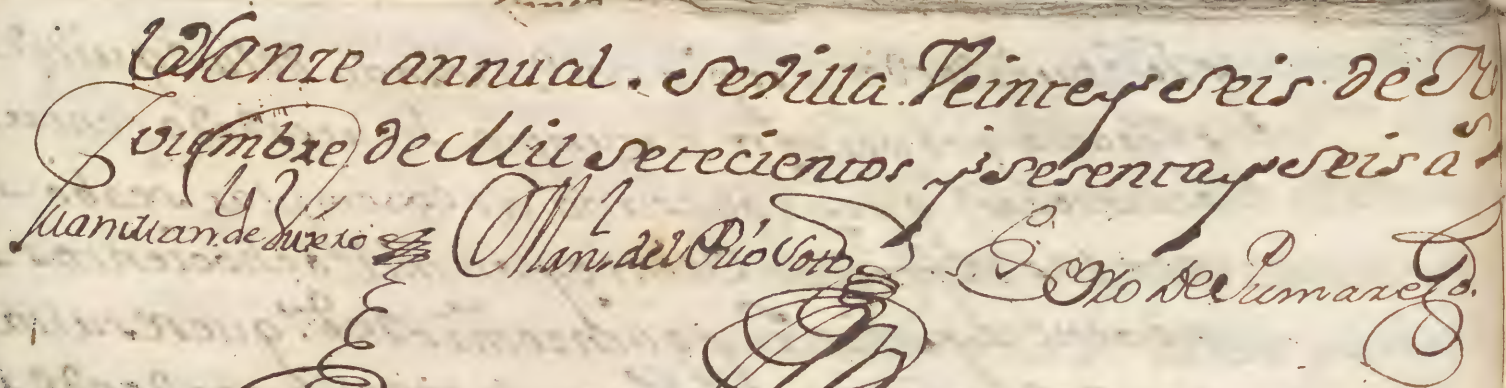 Valanze annual. Sevilla Veinte y Seis de No
viembre de Mil setecientos y sesenta y Seis a.s
Juan Man. de Vivero Man. del Río Soto P.o de Pumarejo